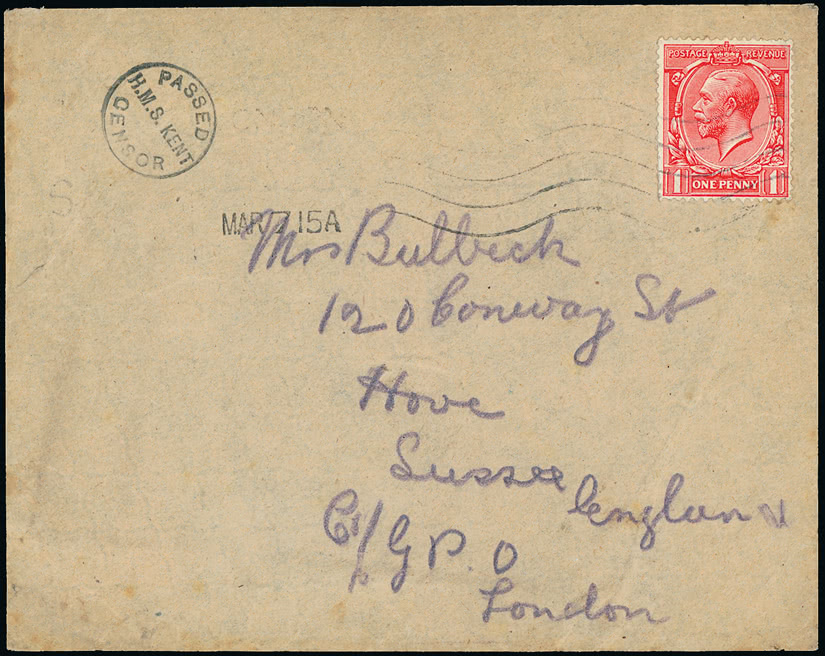 PASSED
H.M.S. KENT
CENSOR
POSTAGE REVENUE
1 ONE PENNY 1
MAR 7 15A
Mrs Bulbeck
120 Coneway St
Hove
Sussex
England
C/o G P. O
London